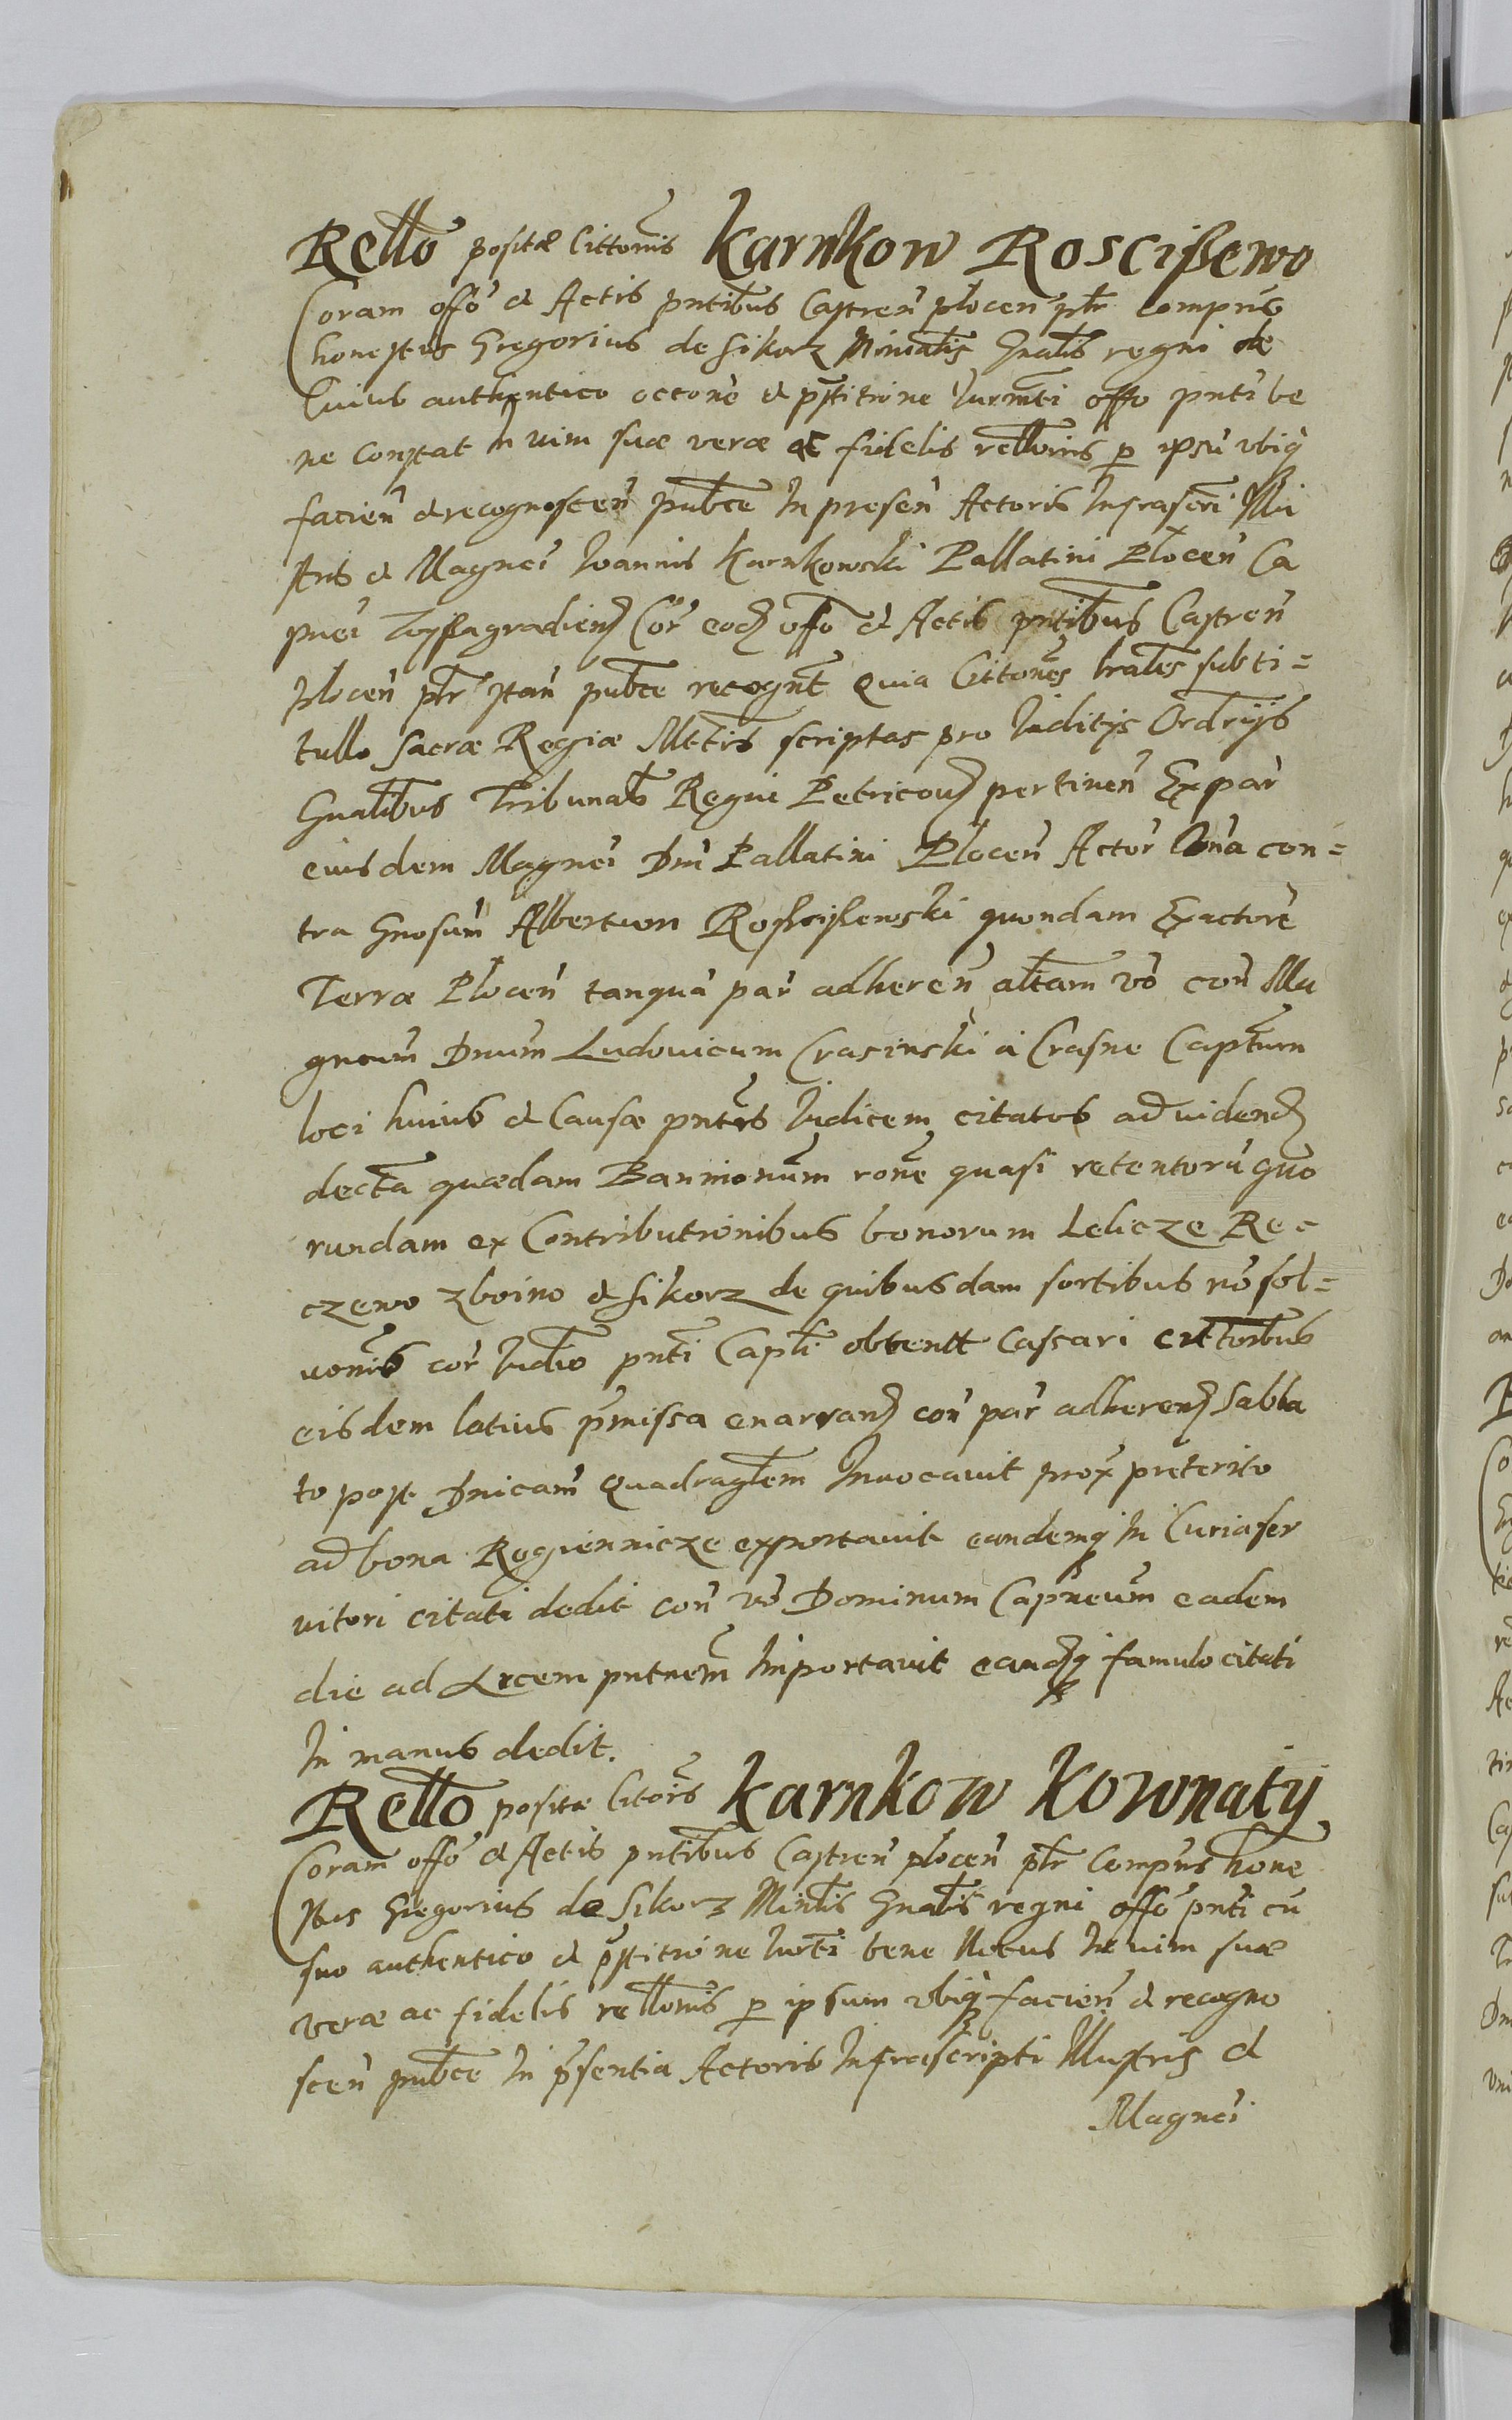 Rello positæ Cittonis Karnkow Roscißewo
Coram offo et Actis pntibus Castren plocen pltr Comprns
honestus Gregorius de Sikorz Ministlis Gnalis regni de
Cuius authentico occone et pstitione Iurmti offo pnti be
ne constat In uim suæ veræ ac fidelis rellonis p ipsu vbiq
facien et recognoscen pubce In presen Actoris Infrascri Illu
stris et Magnci Ioannis Karnkowski Pallatini Plocen Ca
pnei Wyssagradien Cor eod offo et Actis pntibus Castren
plocen pltr stan pubce recognt Quia Cittones lrales sub ti=
tullo Sacræ Regiæ Mttis scriptas pro Iuditijs Ordrijs
Gnalibus Tribunals Regni Petricov pertinen Ex par
eiusdem Magnci Dni Pallatini Plocen Actor Vna con=
tra Gnosum Albertum Rosscissewski quondam Exactore
Terræ Plocen tanqua par adheren altam vo con Ma
gncum Dnum Ludouicum Crasinski a Crasne Captum
loci huius et Causæ pntis Iudicem citatos ad uidend
decta quædam Bannionum rone quasi retentoru quo
rundam ex Contributionibus bonorum Lelicze Re=
czewo zboino et Sikorz de quibusdam sortibus no sol=
uonis cor Iudio pnti Capli obtentt Cassari Cittonibus
eisdem latius pmissa enarrand con par adherend Sabba
to post Dnicam Quadraglem Inuocauit prox preterito
ad bona Rogiennicze exportauit eandemq In Curia ser
uitori citati dedit con vo Dominum Capneum eadem
die ad Arcem pntnem Importauit eandq famulo citati
In manus dedit.
Rello positæ Citonis Karnkow Kownaty
Coram offo et Actis pntibus Castren plocen pltr Comprns hone
stus Gregorius de Sikorz Mintlis Gnalis regni offo pnti cu
suo authentico et pstitione Iurti bene Notus In uim suæ
veræ ac fidelis rellonis p ipsum vbiq facien et recogno
scen pubce In psentia Actoris Infrascripti Illustris et
Magnci